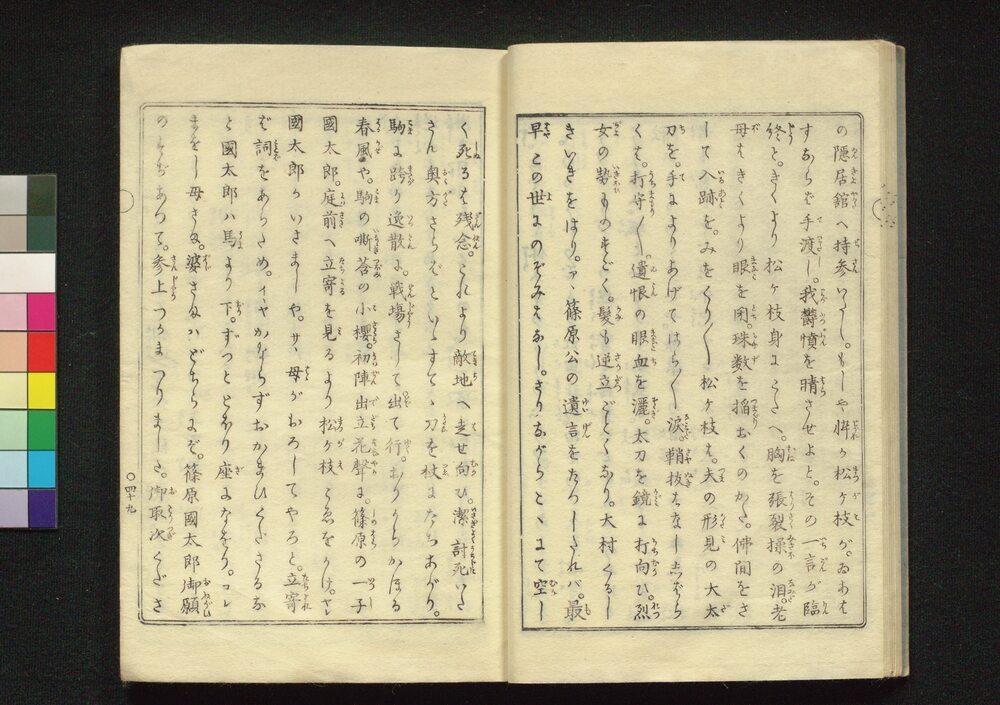 の隠居舘へ持参いたし。もしや忰か松ヶ枝が。ゐあは
すならば手渡し。我欝憤を晴させよと。その一言が臨
終と。きくより松ヶ枝身にこたへ。胸を張裂操の泪。老
母はきくより眼を閉。珠数を搯おくのかた。佛間をさ
して入跡を。みをくり〳〵松ヶ枝は。夫の形見の大太
刀を。手にとりあげてはら〳〵涙。鞘抜はなし志ばら
くは。打守〳〵。遺恨の眼血を灑。太刀を鏡に打向ひ。烈
女の勢ものすごく。髪も逆立ごとくなり。大村くるし
きいきをはり。アヽ篠原公の遺言をたつしたれバ。最
早この世にのぞみはなし。さりながらこヽにて空し
く死るは残念。これより敵地へ走せ向ひ。潔討死いた
さん奥方さらばといゝすてゝ刀を杖にたちあがり。
駒に跨り逸散に。戦塲さして出て行。おりからかほる
春風や。駒の嘶莟の小櫻。初陣出立花聲に。篠原の一子
國太郎。庭前へ立寄を見るより松ヶ枝こゑをかけ。ヤレ
國太郎かいさましや。サヽ母がおろしてやろと。立寄
ば詞をあらため。イヤかならずおかまひくださるな
と國太郎ハ馬より下。ずつととほり座になをり。コレ
まをし母さま。婆さまハどちらにぞ。篠原國太郎御願
のすぢあつて。参上つかまつりました。御取次くださ
〇四十九